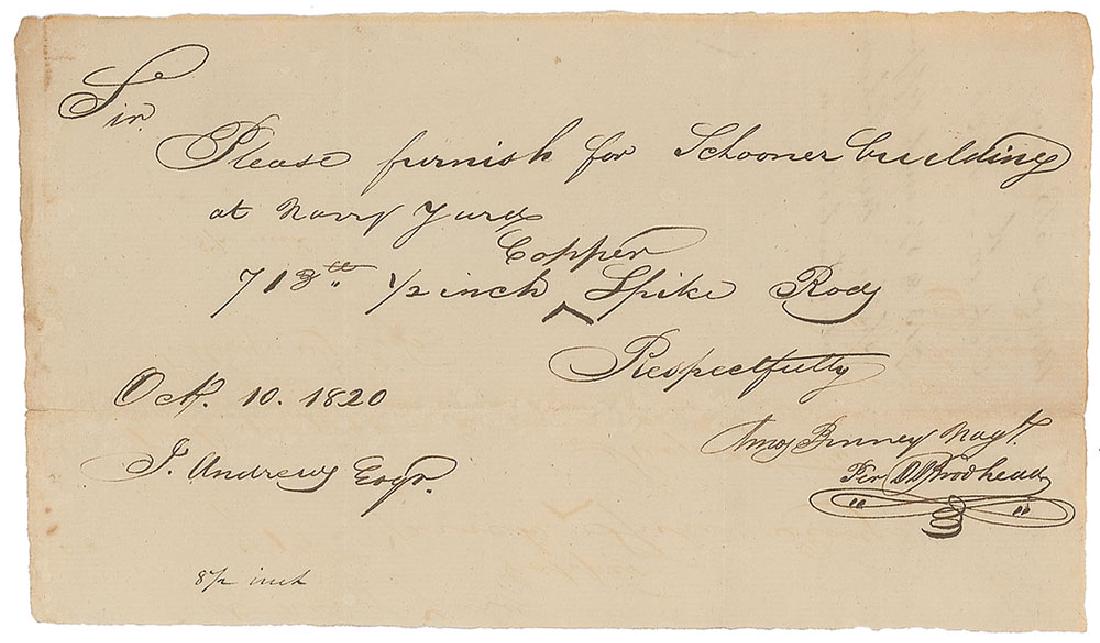 Sir.
Please furnish for Schooner building
at Navy Yard
Copper
713 lb. 1/2 inch ‸ Spike Rods
Respectfully
Oct. 10. 1820
Amos Binney Nagt.
J. Andrews Esqr.
Per D D Brodhead
8/2 inch